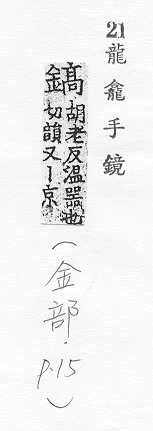 21 龍龕手鏡
鎬 胡老反温器也
切韻又丨京
(金部. p.15)